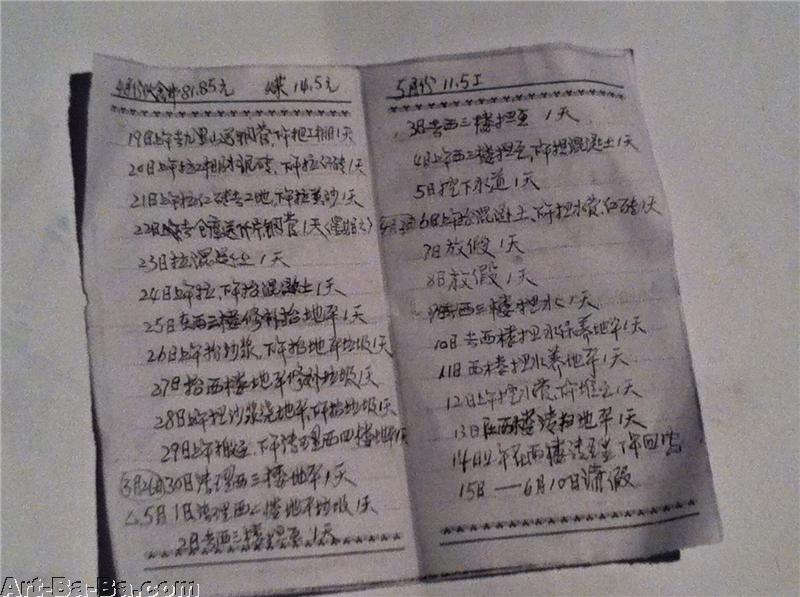 4月份伙食 81.85元 菜 14.5元
19日上午去九里山运钢管、下午把工棚1天
20日上午拉水泥砖、下午拉红砖1天
21日上午拉红砖去工地、下午拉黄砂1天
22日上午去仓库运钢管1天
23日拉混凝土1天
24日上午拉、下午抬混凝土1天
25日在西三楼修补抬地平1天
26日上午抬砂浆、下午抬地平垃圾1天
27日抬西楼地平修补垃圾1天
28日上午担沙浆浇地平、下午抬垃圾1天
29日上午搬运、下午清理西四楼地平1天
30日清理西三楼地平1天
5月1日清理西二楼地平垃圾1天
2日去西三楼担 1天
5月份 11.5工
3日去西三楼担 1天
4日上午西三楼担 、下午担混凝土1天
5日挖下水道1天
6日上午抬混凝土、下午担水管、红砖1天
7日放假1天
8日放假1天
9日去西三楼担水1天
10日去西楼担水保养地平1天
11日西楼担水养地平1天
12日上午挖水管、下午 1天
13日在西楼清扫地平1天
14日上午在西楼清理 下午回
15日——6月10日请假
Art-Ba-Ba.com